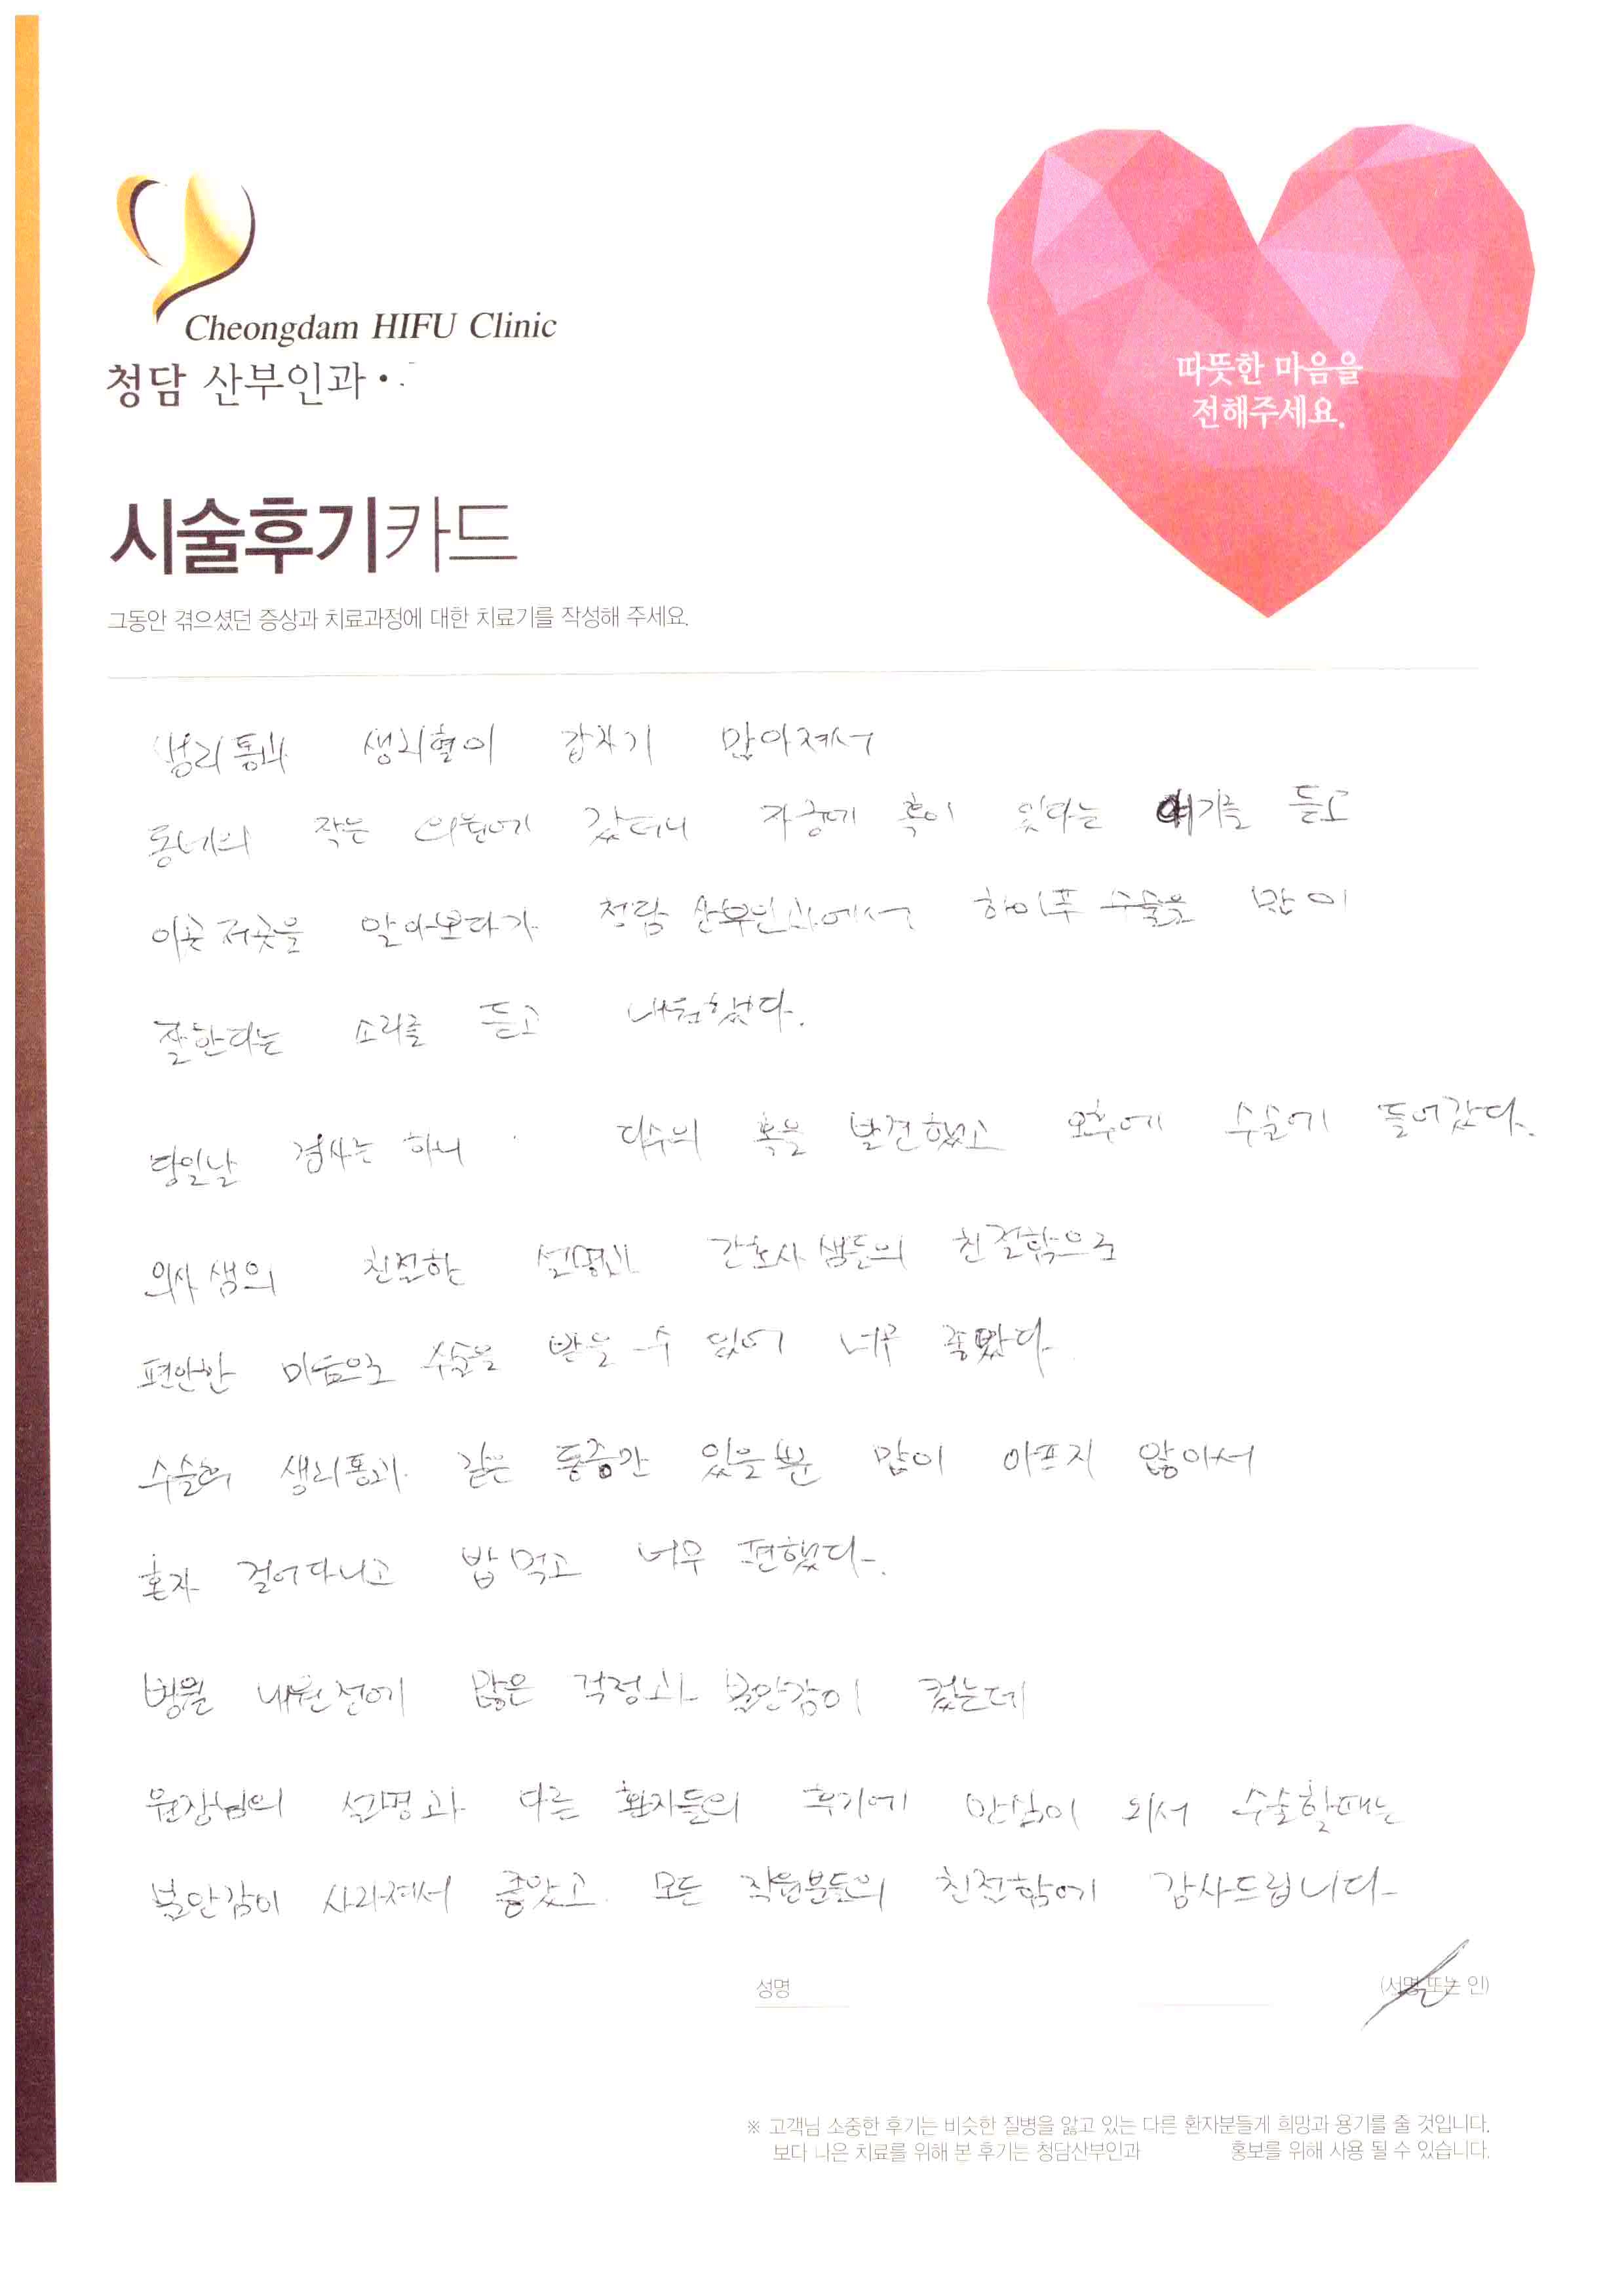 Cheongdam HIFU Clinic
청담 산부인과
따뜻한 마음을
전해주세요.
시술후기카드
그동안 겪으셨던 증상과 치료과정에 대한 치료기를 작성해 주세요.
생리통과 생리혈이 갑자기 많아져서
동네의 작은 의원에 갔더니 자궁에 혹이 있다는 얘기를 듣고
이곳저곳을 알아보다가 청담 산부인과에서 하이푸 수술을 많이
잘한다는 소리를 듣고 내원했다.
당일날 검사는 하니 다수의 혹을 발견했고 오후에 수술에 들어갔다.
의사 샘의 친절한 설명과 간호사 샘들의 친절함으로
편안한 마음으로 수술을 받을 수 있어 너무 좋았다.
수술후 생리통과 같은 통증만 있을뿐 많이 아프지 않아서
혼자 걸어다니고 밥먹고 너무 편했다.
병원 내원전에 많은 걱정과 불안감이 컸는데
원장님의 설명과 다른 환자들의 후기에 안심이 되서 수술할때는
불안감이 사라져서 좋았고 모든 직원분들의 친절함에 감사드립니다.
성명 (서명 또는 인)
※ 고객님 소중한 후기는 비슷한 질병을 앓고 있는 다른 환자분들게 희망과 용기를 줄 것입니다.
보다 나은 치료를 위해 본 후기는 청담산부인과 홍보를 위해 사용 될 수 있습니다.